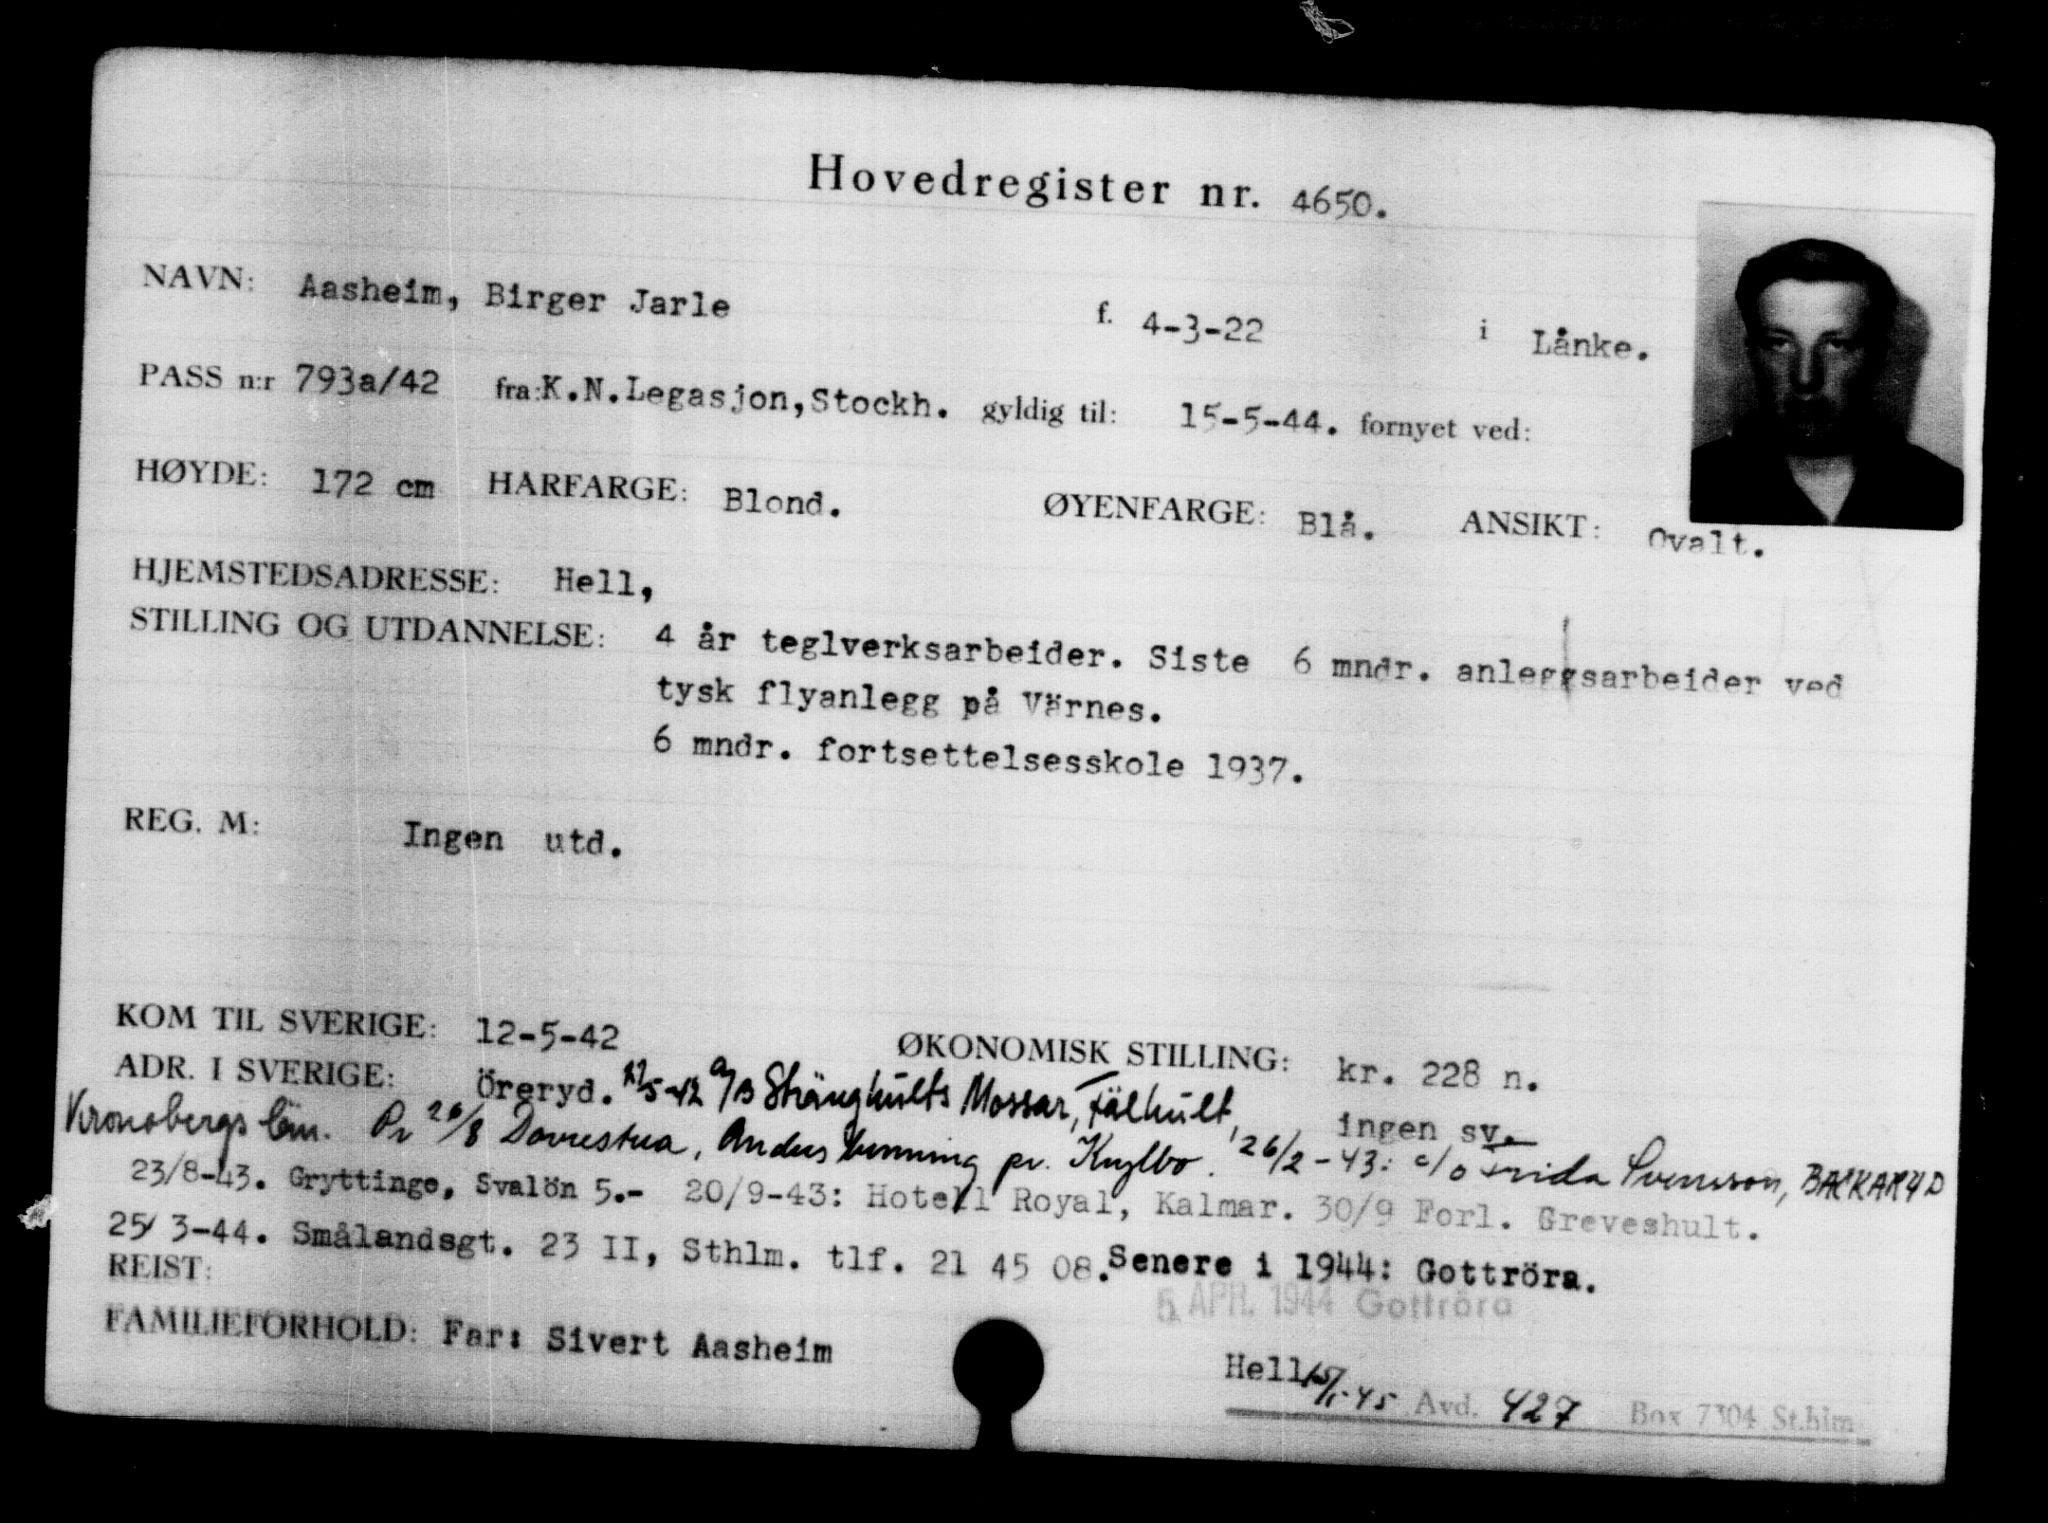 Hovedregister nr. 4650.
NAVN: Aasheim, Birger Jarle f. 4-3-22 i Lånke.
PASS n:r 793a/42 fra: K.N.Legasjon, Stockh. gyldig til: 15-5-44. fornyet ved:
HØYDE: 172 cm HARFARGE: Blond. ØYENFARGE: Blå. ANSIKT: Ovalt.
HJEMSTEDSADRESSE: Hell,
STILLING OG UTDANNELSE: 4 år teglverksarbeider. Siste 6 mndr. anleggsarbeider ved
tysk flyanlegg på Värnes.
6 mndr. fortsettelsesskole 1937.
REG. M: Ingen utd.
KOM TIL SVERIGE: 12-5-42 ØKONOMISK STILLING: kr. 228 n.
ADR. I SVERIGE: Öreryd. A/B Stränghults Mossar, Fälhult, ingen sv.
Kronobergs län. Pr 26/8 Davrestua, pr. Krylbo. 26/2-43: c/o Frida Svensson, BACKARYD
23/8-43. Gryttinge, Svalön 5.- 20/9-43: Hotell Royal, Kalmar. 30/9 Forl. Greveshult.
25/3-44. Smålandsgt. 23 II, Sthlm. tlf. 21 45 08. Senere i 1944: Gottröra.
REIST: 5. APR. 1944 Gottröra
FAMILIEFORHOLD: Far: Sivert Aasheim
Hell
Avd. 427 Box 7304 Sthlm